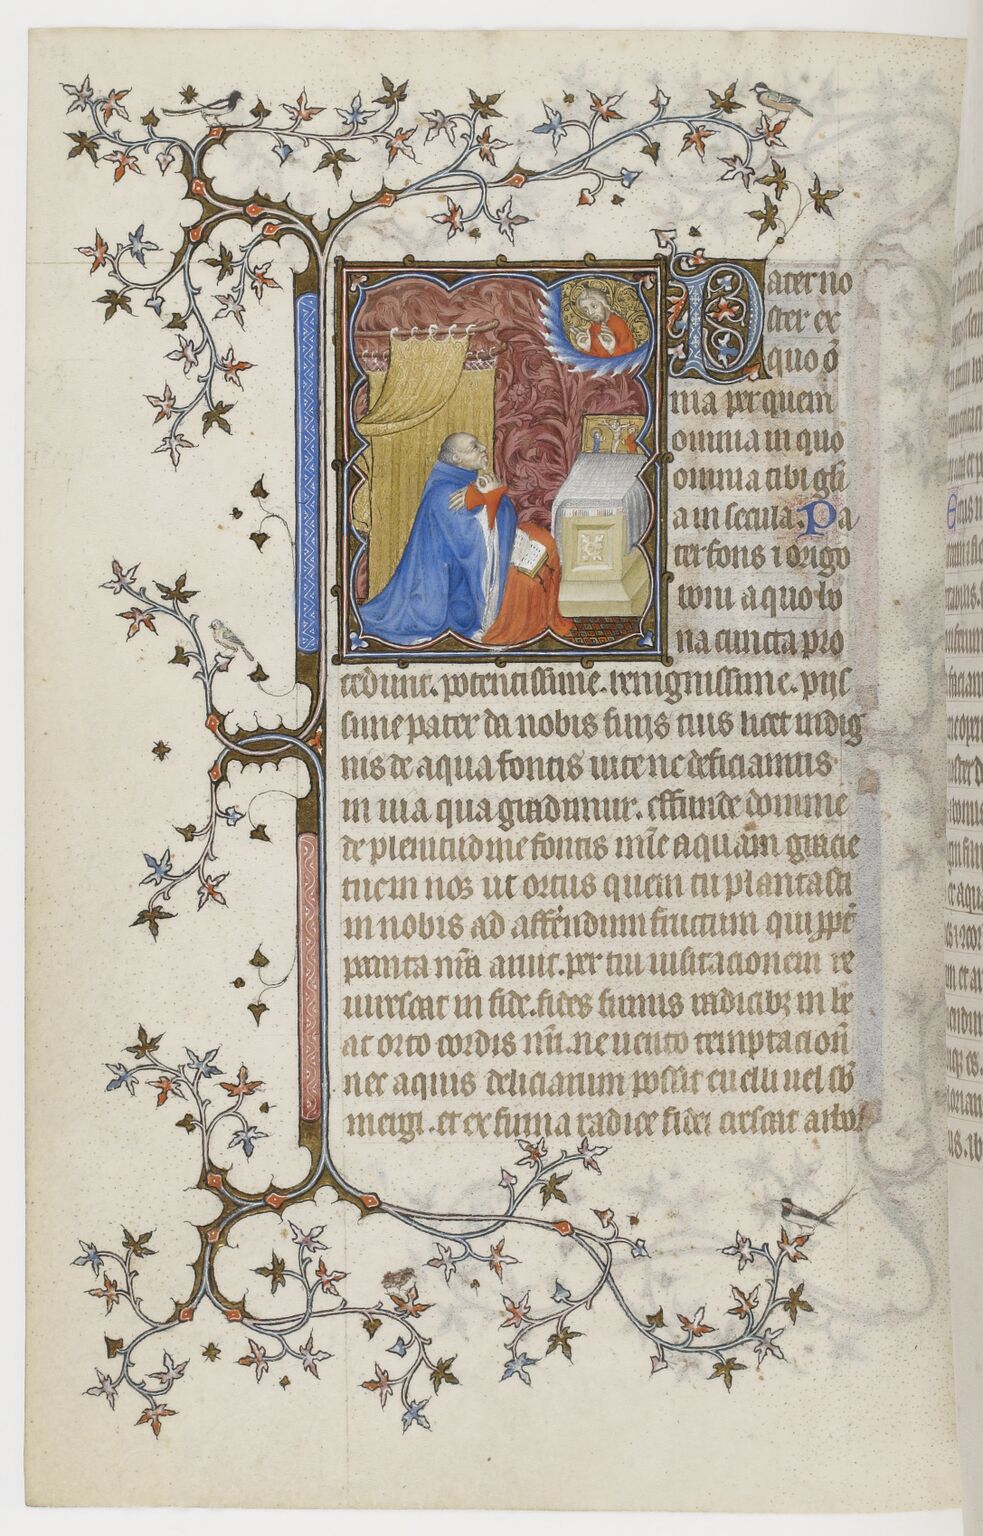 Pater no
ster ex
quo oͫ
nia per quem
omnia in quo
omnia tibi gl̄i
a in secula. Pa
ter fons ⁊ origo
a quo bo
na cuncta pro
cedunt. potentissime. benignissime. pijs
sime pater da nobis filijs tuis licet indig
nis de aqua fontis vite ne deficiamus
in uia qua gradimur. effunde domine
de plenitudine fontis aquam gracie
tue in nos ut ortus quem tu plantasti
in nobis ad afferendum fructum
nr̄a per tui uisitacionem re
in fide. fides firmis radicibꝫ in
orto cordis nr̄i. ne uento temptacion̄
nec aquis deliciarum possit euelli uel sb̄
mergi. et ex firma radice fidei crescat arbor